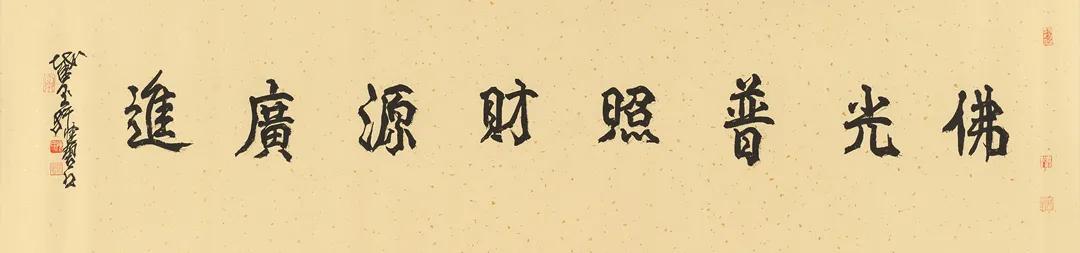 佛光普照財源廣進